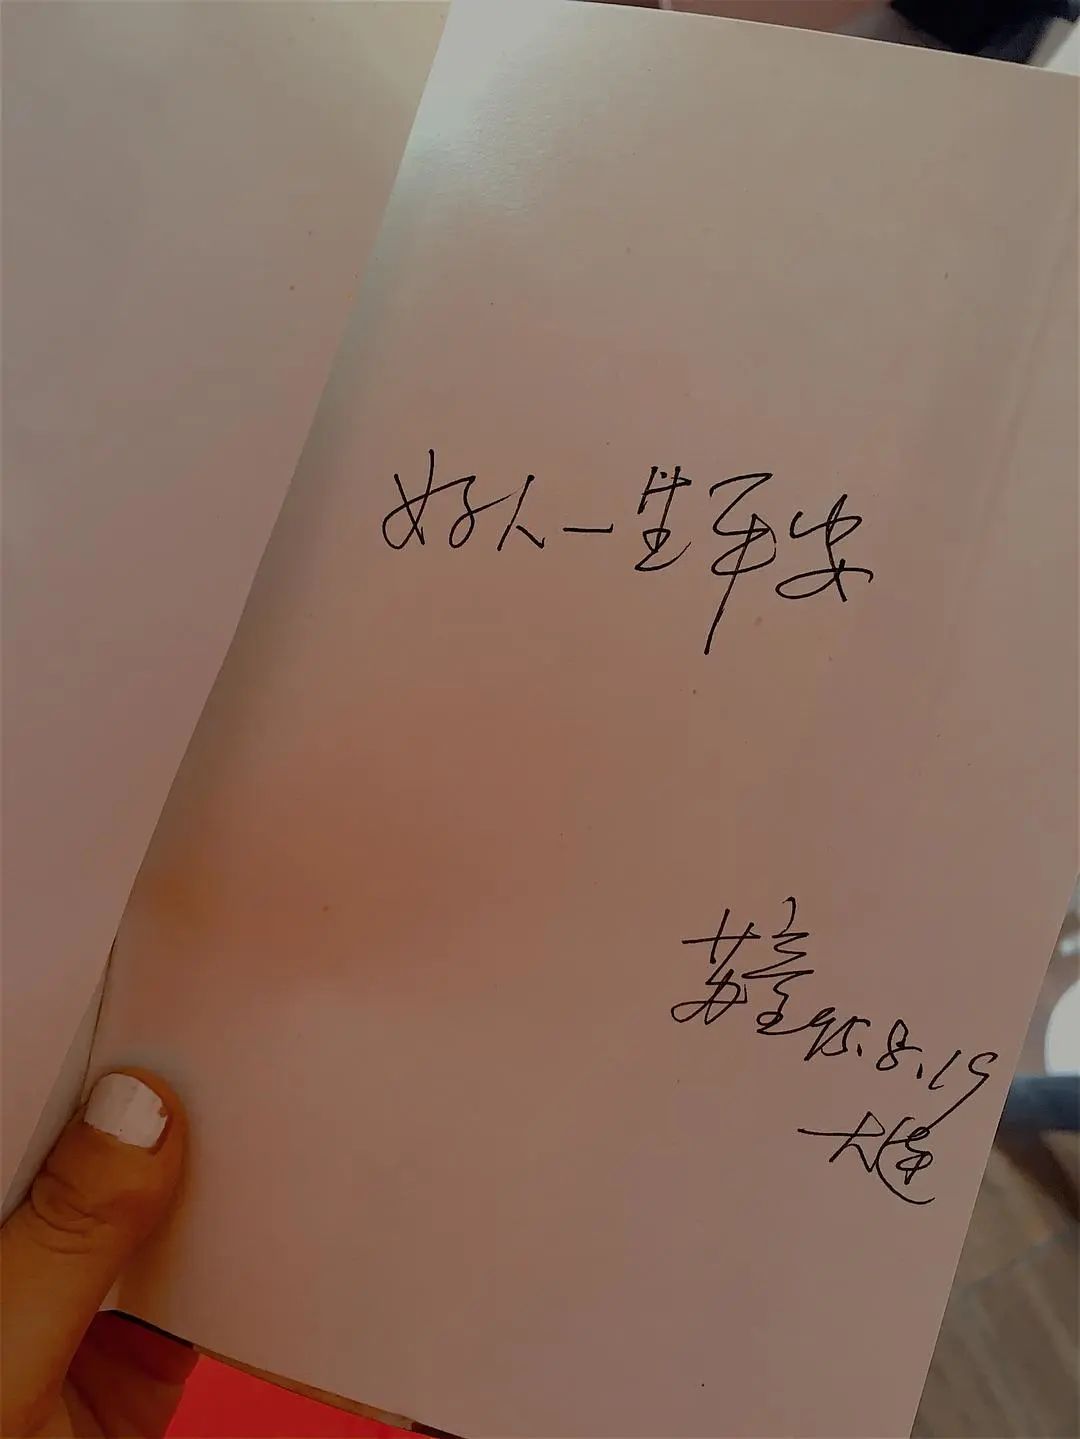 好人一生平安
苏童 95.8.19
大连